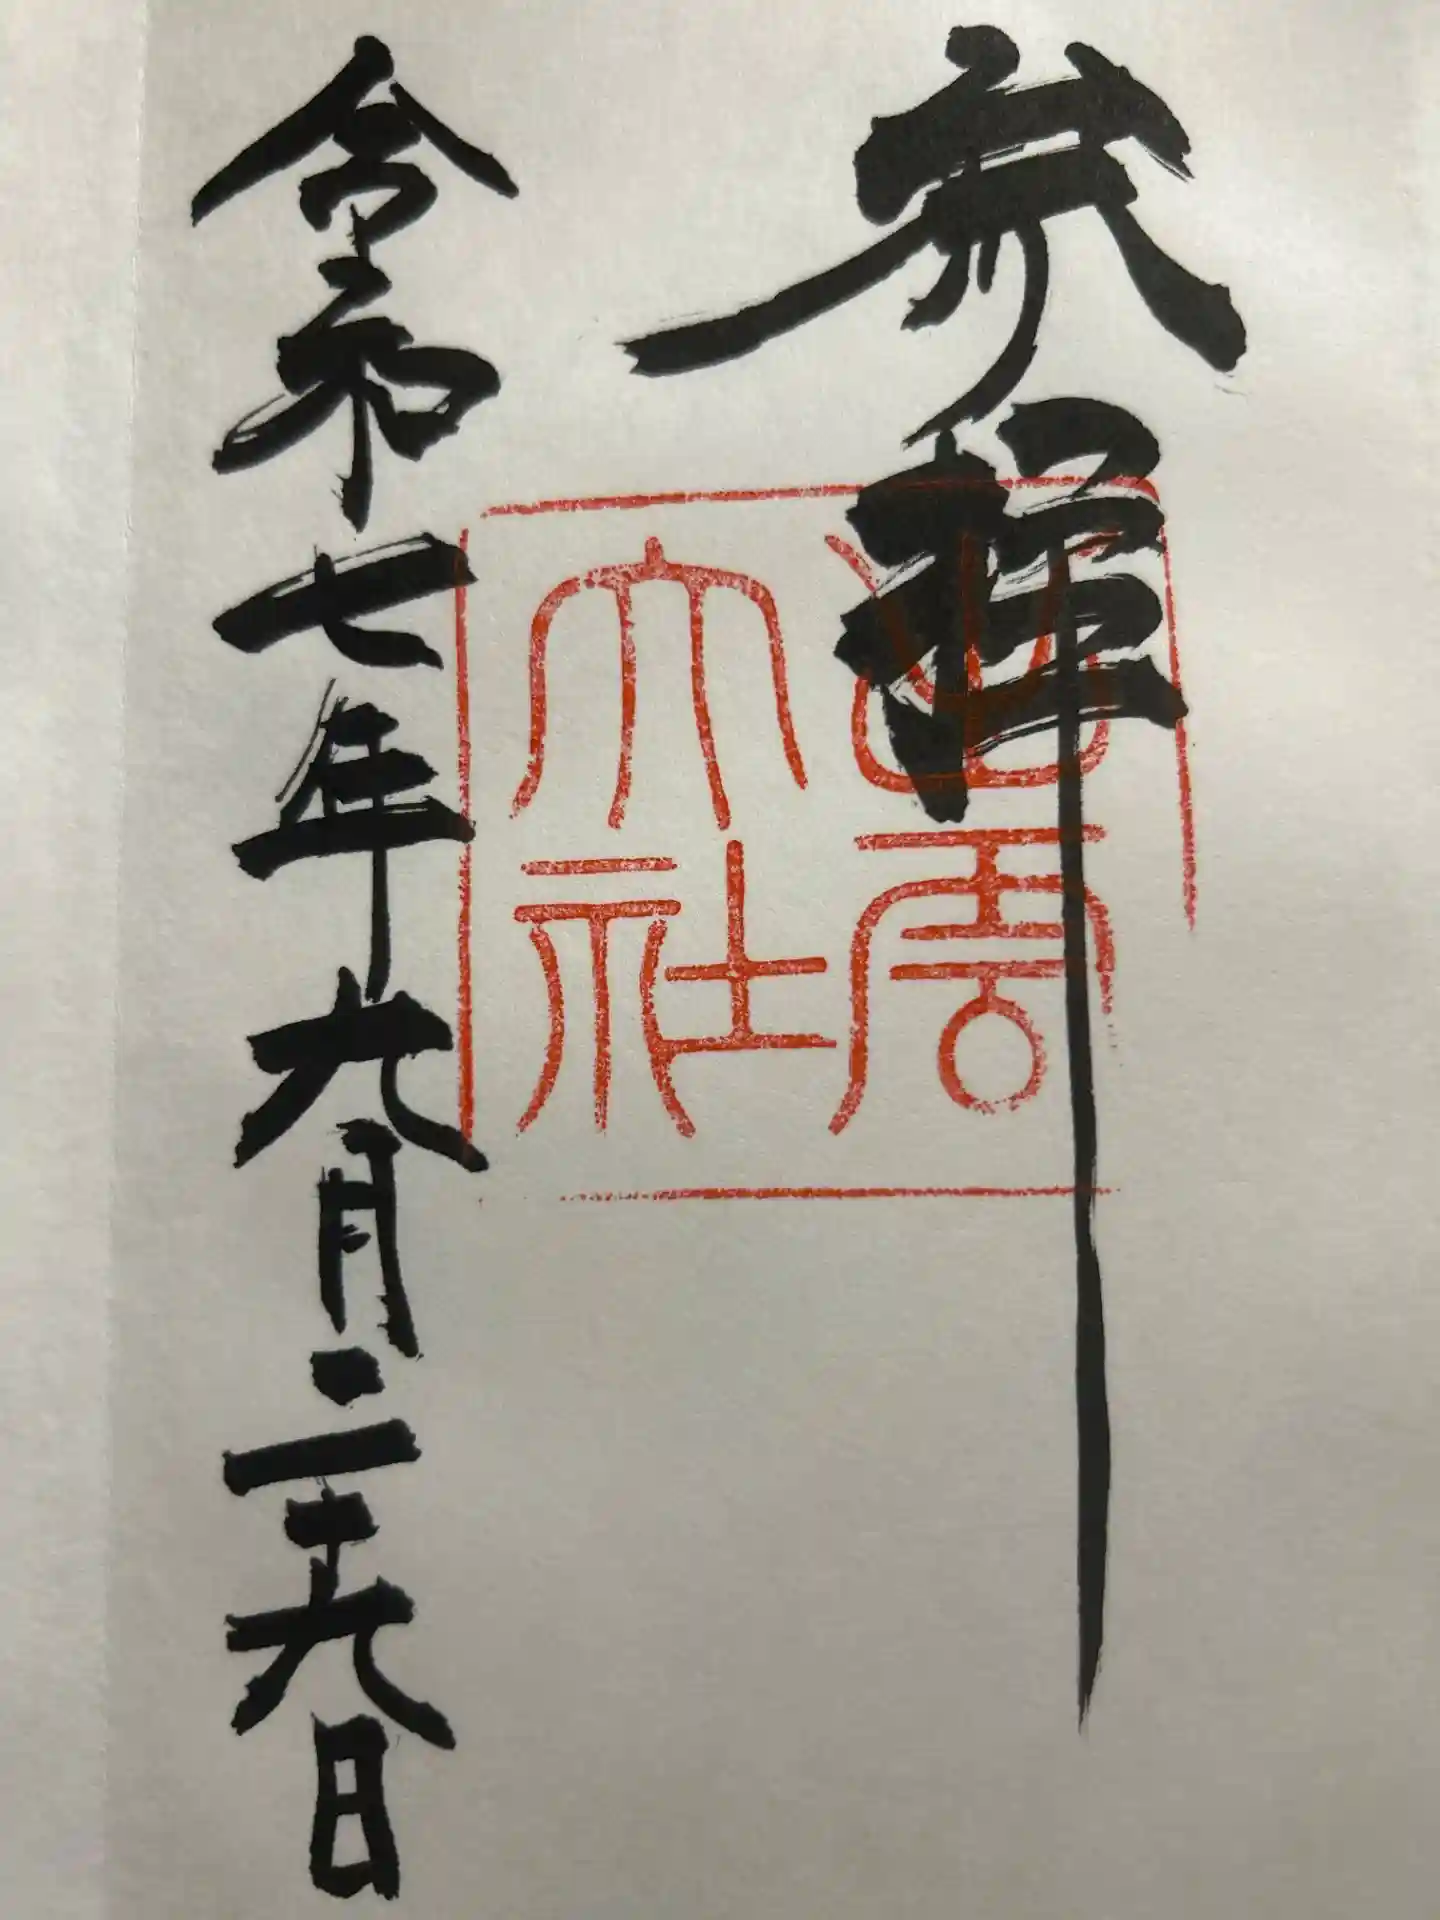 参拝
出雲
大社
令和七年九月二十九日